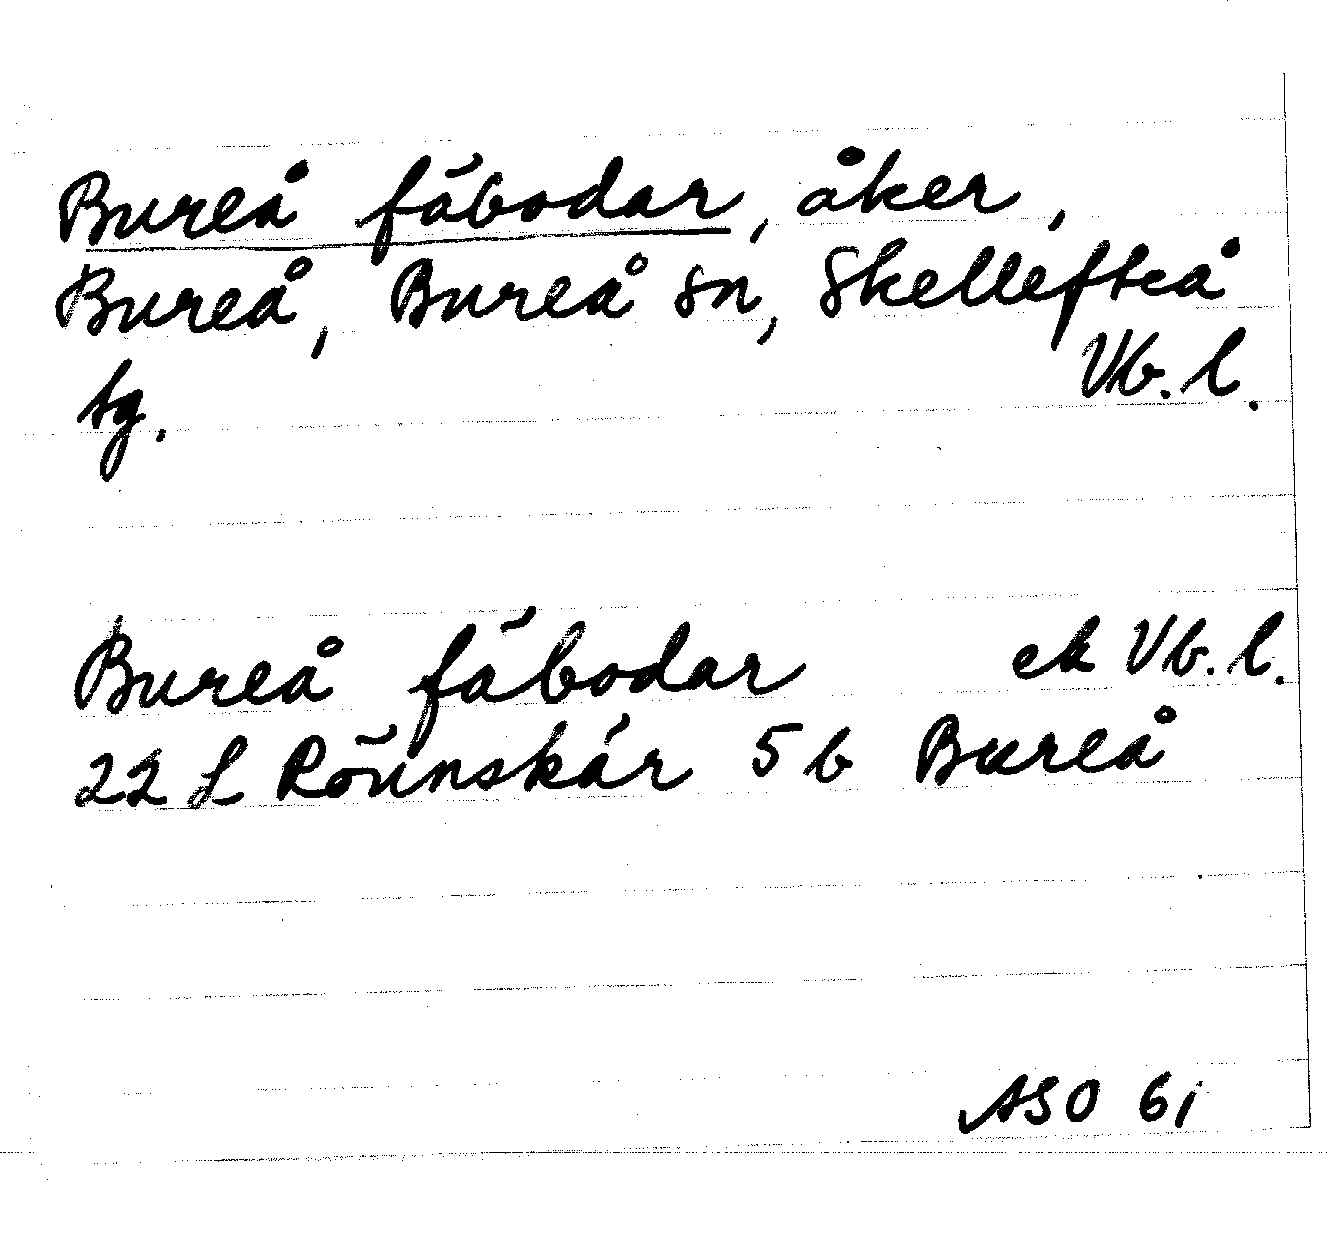 Bureå fäbodar, åker,
Bureå, Bureå sn, Skellefteå
tg. Vb. l.
Bureå fäbodar ek Vb. l.
22 L Rönnskär 5 b Bureå
ASO 61